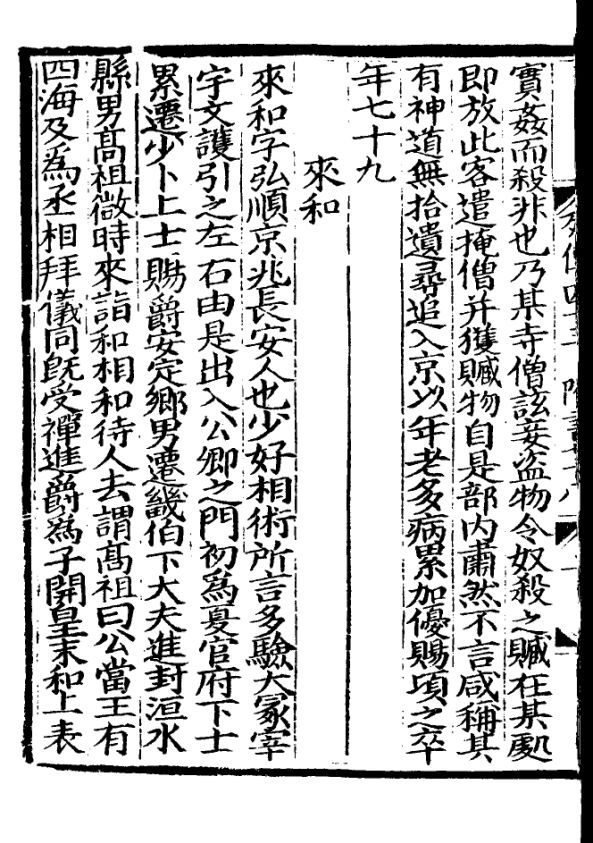 實姦而殺非也乃某寺僧𧦬妾盗物令奴殺之贓在某處
即放此客遣掩僧并獲贓物自是部內肅然不言咸稱其
有神道無拾遺尋追入京以年老多病累加優賜頃之卒
年七十九
來和
來和字弘順京兆長安人也少好相術所言多驗大冢宰
宇文護引之左右由是出入公卿之門初爲夏官府下士
累遷少卜上士賜爵安定鄉男遷畿伯下大夫進封洹水
縣男髙祖微時來詣和相和待人去謂髙祖曰公當王有
四海及爲丞相拜儀同旣受禪進爵爲子開皇末和上表